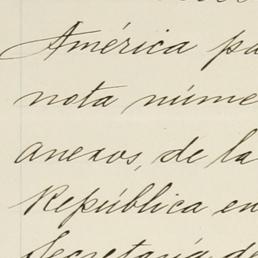 América pa
nota núme
anexos, de la
República en
Secretaría de